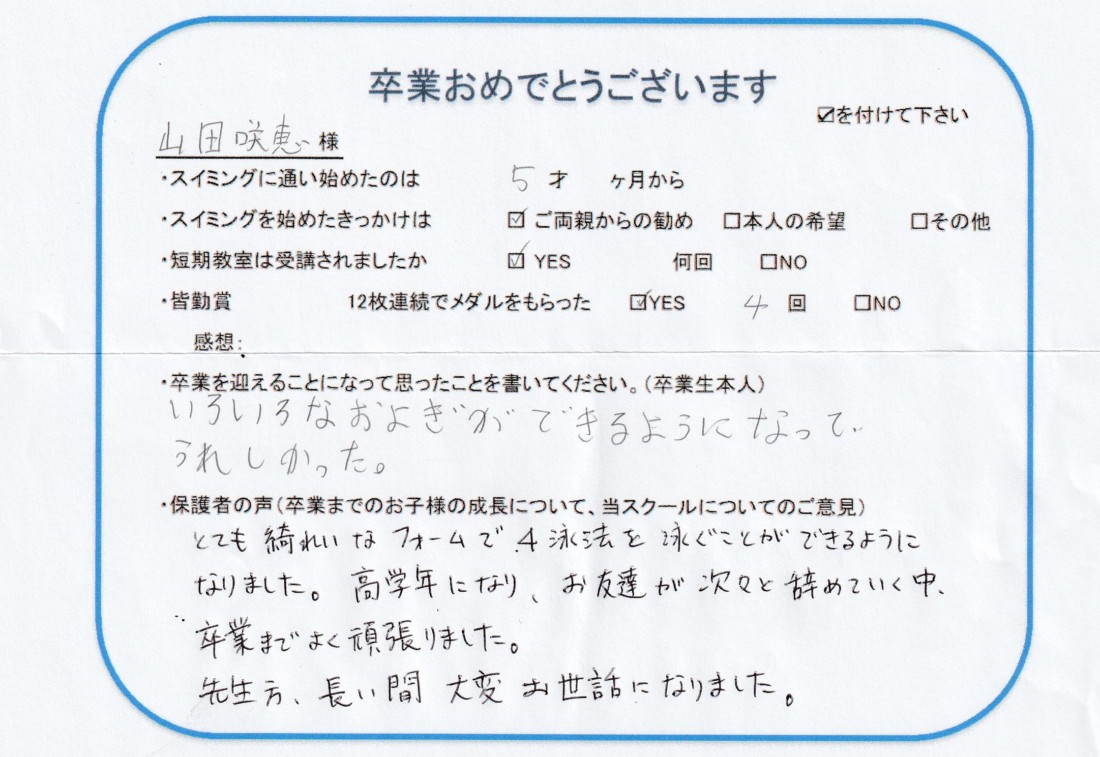 卒業おめでとうございます
☑を付けて下さい
山田咲恵 様
・スイミングに通い始めたのは 5 才 ヶ月から
・スイミングを始めたきっかけは ☑ ご両親からの勧め □本人の希望 □その他
・短期教室は受講されましたか ☑ YES 何回 □NO
・皆勤賞 12枚連続でメダルをもらった ☑YES 4 回 □NO
感想:
・卒業を迎えることになって思ったことを書いてください。(卒業生本人)
いろいろなおよぎができるようになって
うれしかった。
・保護者の声(卒業までのお子様の成長について、当スクールについてのご意見)
とても綺れいなフォームで4泳法を泳ぐことができるように
なりました。高学年になり、お友達が次々と辞めていく中、
卒業までよく頑張りました。
先生方、長い間大変お世話になりました。